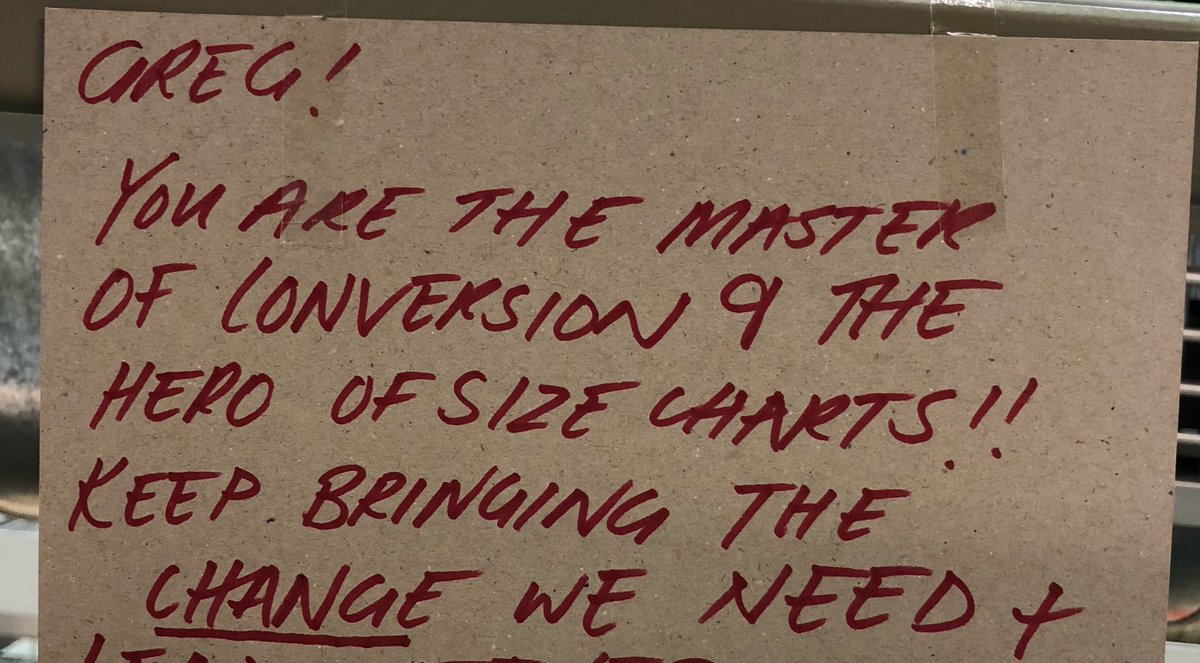 GREG!
YOU ARE THE MASTER
OF CONVERSION & THE
HERO OF SIZE CHARTS!!
KEEP BRINGING THE
CHANGE WE NEED +